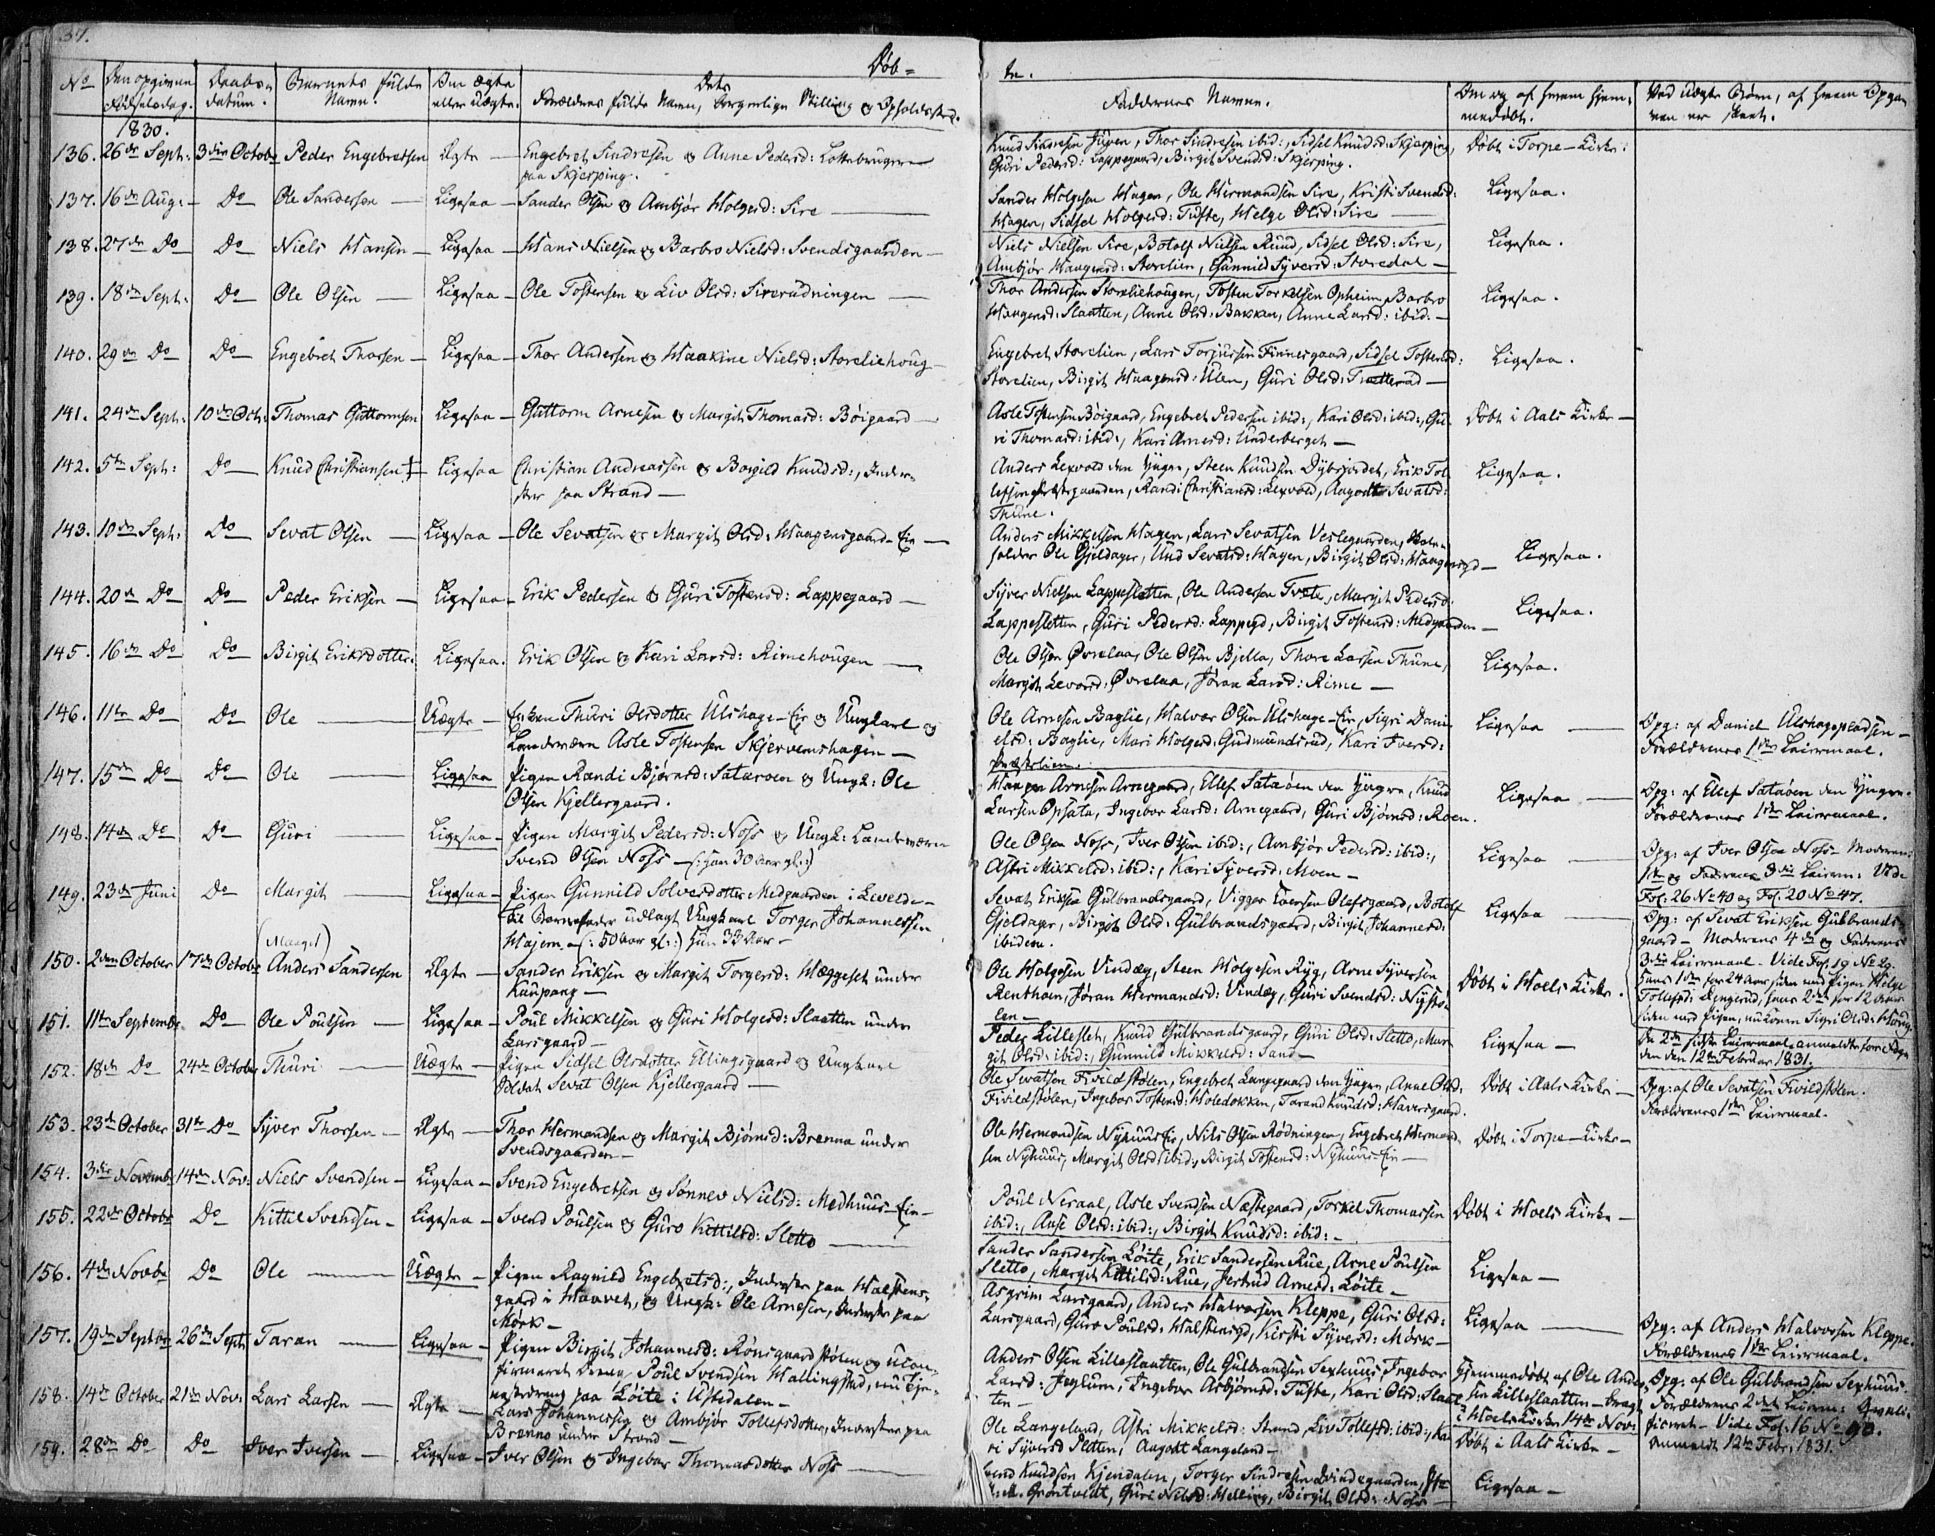 37.
Døb=
te.
No
Den opgivne Fødselsdag.
Daabs-datum.
Barnets fulde Navn.
Om ægte eller uægte.
Dets Forældres fulde Navn, borgerlige Stilling og Opholdssted.
Faddernes Navne.
Om og af hvem hjemmedøbt.
Ved uægte Børn, af hvem Opgaven er skeet.
1830.
136. 26de Sept: 3die Octobr Peder Engebretsen Ægte — Engebret Sindresen og Anne Pedersd:
paa Skjerping.
Knud Sindresen Juven, Thor Sindresen ibid:, Sidsel Knudsd: Skjerping,
Guri Pedersd: Lappegaard, Birgit Svendsd: Skjerping.
Døbt i Torpe-Kirke:
137. 16de Aug: — Do Ole Sandersen — Ligesaa — Sander Olsen og Ambjør Holgersd: Sire —
Sander Holgesen Hagen, Ole Hermandsen Sire, Kristi Svendsd:
Hagen, Sidsel Holgersd: Tufte, Helge Olsd: Sire —
Ligesaa.
138. 27de Do Do Niels Hansen — Ligesaa — Hans Nielsen og Barbro Nielsd: Svendsgaarden —
Niels Nielsen Sire, Botolf Nielsen Ruud, Sidsel Olsd: Sire,
Ambjør Haagensd: Storelien, Gunnild Syversd: Storedal —
Ligesaa.
139. 18de Sept: Do Ole Olsen — Ligesaa — Ole Tostensen og Liv Olsd: Sirerudningen —
Thor Andersen Storeliehougen, Tosten Torkelsen Opheim, Barbro
Haagensd: Slaatten, Anne Olsd: Bakken, Anne Larsd: ibid. —
Ligesaa.
140. 29de Do Do Engebret Thorsen — Ligesaa — Thor Andersen og Haakine Nielsd: Storeliehoug —
Engebret Storelien, Lars Torjursen Finnesgaard, Sidsel Tostensd:
Storelien, Birgit Haagensd: Ulen, Guri Olsd: —
Ligesaa.
141. 24de Sept: 10de Oct: Thomas Guttormsen Ligesaa — Guttorm Arnesen og Margit Thomasd: Böigaard —
Asle Tostensen Böigaard, Engebret Pedersen ibid:, Kari Olsd: ibid:, Gu-
ri Thomasd: ibid:, Kari Arnesd: Underberget —
Døbt i Aals Kirke —
142. 5te Sept: Do Knud Christiansen ‡ Ligesaa Christian Andreassen og Borgild Knudsd:, Inder-
ster paa Strand —
Anders Lexvold den Yngre, Steen Knudsen Dybsjordet, Erik Tol-
lefsen Prestegaarden, Randi Christiansd: Lexvold, Aagodt Sevatsd:
Thune.
Ligesaa.
143. 10de Sept: Do Sevat Olsen — Ligesaa — Ole Sevatsen og Margit Olsd: Haagensgaard-Eie —
Anders Mikkelsen Hagen, Lars Sevatsen Veslegaarden,
Ole Gjeldager, Und Sevatsd: Hagen, Birgit Olsd: Haagensgd —
Ligesaa.
144. 20de Do Do Peder Eriksen — Ligesaa — Erik Pedersen og Guri Tostensd: Lappegaard —
Syver Nielsen Lappesletten, Ole Andersen Tvete, Margit Pedersd:
Lappesletten, Guri Pedersd: Lappegd, Birgit Tostensd: Medgaarden —
Ligesaa.
145. 16de Do Do Birgit Eriksdotter. Ligesaa. Erik Olsen og Kari Larsd: Rimehougen —
Ole Olsen Øvrelaa, Ole Olsen Bjella, Thore Larsen Thune,
Margit Levorsd: Øvrelaa, Jöran Larsd: Rime —
Ligesaa.
146. 11te Do Do Ole — Uægte — Enken Thuri Olsdotter Ulshage-Eie og Ungkarl og
Landeværn Asle Tostensen Skjervemshagen —
Ole Arnesen Baglie, Halvor Olsen Ulshage-Eie, Sigri Dani-
elsd: Baglie, Mari Holgersd: Gudmundsrud, Kari Iversd:
Ligesaa —
Opg: af Daniel Ulshagepladsen —
Forældrenes 1ste Leiermaal.
147. 15de Do Do Ole — Ligesaa Pigen Randi Bjørnsd: Sataroen og Ungk: Ole
Olsen Kjellergaard.
Haagen Arnesen Arnegaard, Ellef Sataöen den Yngre, Knud
Larsen Opsata, Ingebor Larsd: Arnegaard, Guri Bjørnsd: Roen.
Ligesaa —
Opg: af Ellef Sataöen den Yngre.
Forældrenes 1ste Leiermaal.
148. 14de Do Do Guri — Ligesaa — Pigen Margit Pedersd: Noss og Ungk: Landeværn
Svend Olsen Noss — (: hun 30 Aar gl.:)
Ole Olsen Noss, Iver Olsen ibid:, Ambjør Pedersd: ibid:,
Astri Mikkelsd: ibid:, Kari Syversd: Moen —
Ligesaa —
Opg: af Iver Olsen Noss. Moderens
1ste og Faderens 3die Leierm: Vide
Fol. 26 No 40 og Fol. 20 No 47.
149. 23de Juni Do Margit — Ligesaa — Pigen Gunnild Solversdotter Medgaarden i Leveld —
til Barnefader udlagt Ungkarl Torger Johannessen
Hajem — (: 50 Aar gl.:) hun 33 Aar —
Sevat Eriksen Gulbrandsgaard, Vigger Iversen Olefsgaard, Botolf
Gjeldager, Birgit Olsd: Gulbrandsgaard, Birgit Johannesd:
ibidem.
Ligesaa —
Opg: af Sevat Eriksen Gulbrands-
gaard — Moderens 4de og Faderens
3die Leiermaal. Vide Fol. 19 No 29.
hans 1ste for 24 Aar siden med Pigen Helge
Tollefsd: , hans 2det for 12 Aar
siden med Pigen, nu Konen Sigri Olsd:
De 2de sidste Leiermaal anmeldte for Fog-
den den 12te Februar 1831.
(Margit)
150. 2den October 17de October Anders Sandersen Ægte — Sander Eriksen og Margit Torgersd: Hæggeset under
Kaupang —
Ole Holgesen Vindæg, Steen Holgesen Ryg, Arne Syversen
Renthoen, Jöran Hermandsd: Vindæg, Guri Svendsd: Nystö-
len —
Døbt i Hoels Kirke.
151. 11te Septembr Do Ole Poulsen — Ligesaa — Poul Mikkelsen og Guri Holgersd: Slaatten under
Larsgaard —
Peder Lilleslet, Knud Gulbrandsgaard, Guri Olsd: Sletto, Mar-
git Olsd: ibid:, Gunnild Mikkelsd: Sand —
Ligesaa —
152. 18de Do 24de October Thuri — Uægte — Pigen Sidsel Olsdotter Ellingsgaard og Ungkarl
Soldat Sevat Olsen Kjellergaard —
Ole Sevatsen Fivildstölen, Engebret Langegaard den Yngre, Anne Olsd:
Fivildstölen, Ingebor Tostensd: Holedokken, Tarand Knudsd: Haversgaard.
Døbt i Aals Kirke —
Opg: af Ole Sevatsen Fivildstölen.
Forældrenes 1ste Leiermaal.
153. 23de October 31te Do Syver Thorsen — Ægte — Thor Hermandsen og Margit Bjørnsd: Brenna under
Svendsgaarden —
Ole Hermandsen Nyhuus Eie, Nils Olsen Rödningen, Engebret Hermand-
sen Nyhuus, Margit Olsd: ibid:, Birgit Tostensd: Nyhuus-Eie —
Døbt i Torpe-Kirke —
154. 3die Novembr 14de Nov: Niels Svendsen — Ligesaa — Svend Engebretsen og Sönnev Nielsd: Medhuus-Eie —
Poul Neraal, Asle Svendsen Næstegaard, Torkel Thomassen
ibid:, Anse Olsd: ibid:, Birgit Knudsd: ibid: —
Døbt i Hoels Kirke —
155. 22de Octobr Do Kittil Svendsen — Ligesaa — Svend Poulsen og Guro Kittilsd: Sletto —
Sander Sandersen Löite, Erik Sandersen Rue, Arne Poulsen
Sletto, Margit Kittilsd: Rue, Jertrud Arnesd: Löite —
Ligesaa —
156. 4de Novbr Do Ole — Uægte — Pigen Ragnild Engebretsd:, Inderster paa Halstens-
gaard i Haavet, og Ungk: Ole Arnesen, Inderster paa
Mörk —
Asgrim Larsgaard, Anders Halvorsen Kleppe, Guri Olsd:
Larsgaard, Guro Poulsd: Halstensgd, Kirsti Syversd: Mörk —
Ligesaa —
Opg: af Anders Halvorsen Kleppe.
Forældrenes 1ste Leiermaal.
157. 19de Septbr 26de Sept: Taran — Ligesaa — Pigen Birgit Johannesd: Rönsgaardstölen og ucon-
firmeret Dreng Poul Svendsen Hallingstad, nu Tje-
nestedreng paa Löite i Ustedalen —
Anders Olsen Lilleslaatten, Ole Gulbrandsen Sexhuus, Ingebor
Larsd: Jeglum, Ingebor Asbjørnsd: Tufte, Kari Olsd: Slaat-
ten —
Hjemmedøbt af Ole Ander-
sen Lilleslaatten — bragt
i Hoels Kirke 14de Nov:
Opg: af Ole Gulbrandsen Sexhuus.
Forældrenes 2det Leierm:
— Vide Fol. 16 No 90.
anmeldt 12te Febr: 1831.
158. 14de October 21de Nov: Lars Larsen — Ægte — Lars Johannessen og Ambjør Tollefsdotter, Inderster paa
Brenno under Strand —
Ole Langeland, Astri Mikkelsd: Strand, Liv Tollefsd: ibid:, Ka-
ri Syversd Pletten, Aagodt Langeland —
Døbt i Aals Kirke —
159. 28de Do Do Iver Iversen — Ligesaa — Iver Olsen og Ingebor Thomasdotter Noss —
Svend Knudsen Kjendalen, Torger Sindresen Qvindegaarden,
Grøntveldt, Guri Nilsd: Helling, Birgit Olsd: Noss —
Ligesaa —